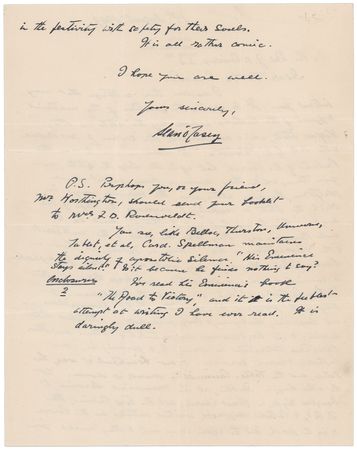 in the festivity with safety for their souls.
It is all rather comic.
I hope you are well.
Yours sincerely,
Sean O'Casey
P.S. Perhaps you, or your friend,
Mr Worthington, should send your booklet
to Mrs F. D. Roosevelt.
You see, like Belloc, Thurston,
Talbot, et al, Card. Spellman maintains
the dignity of apostolic silence. "His Eminence
stays silent." Is it because he finds nothing to say?
Enclosures
2
I've read his Eminence's book
"The Road to Victory", and it is the feeblest
attempt at writing I have ever read. It is
daringly dull.